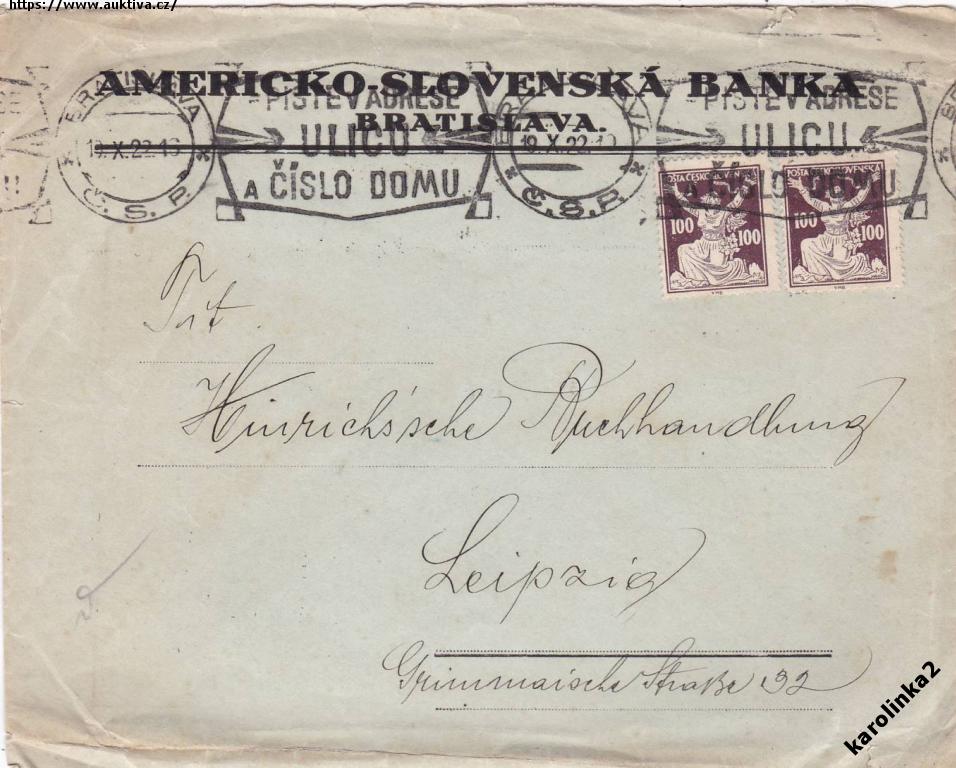 https://www.auktiva.cz/
AMERICKO-SLOVENSKÁ BANKA
BRATISLAVA.
BRATISLAVA
19.X.22.
Č.S.P.
PIŠTE V ADRESE
ULICU
A ČÍSLO DOMU
BRATISLAVA
19.X.22.
Č.S.P.
PIŠTE V ADRESE
ULICU
A ČÍSLO DOMU
POŠTA ČESKOSLOVENSKÁ
100 100
POŠTA ČESKOSLOVENSKÁ
100 100
Tit.
Hinrichs'sche Buchhandlung
Leipzig
Grimmaische Straße 32
karolinka2